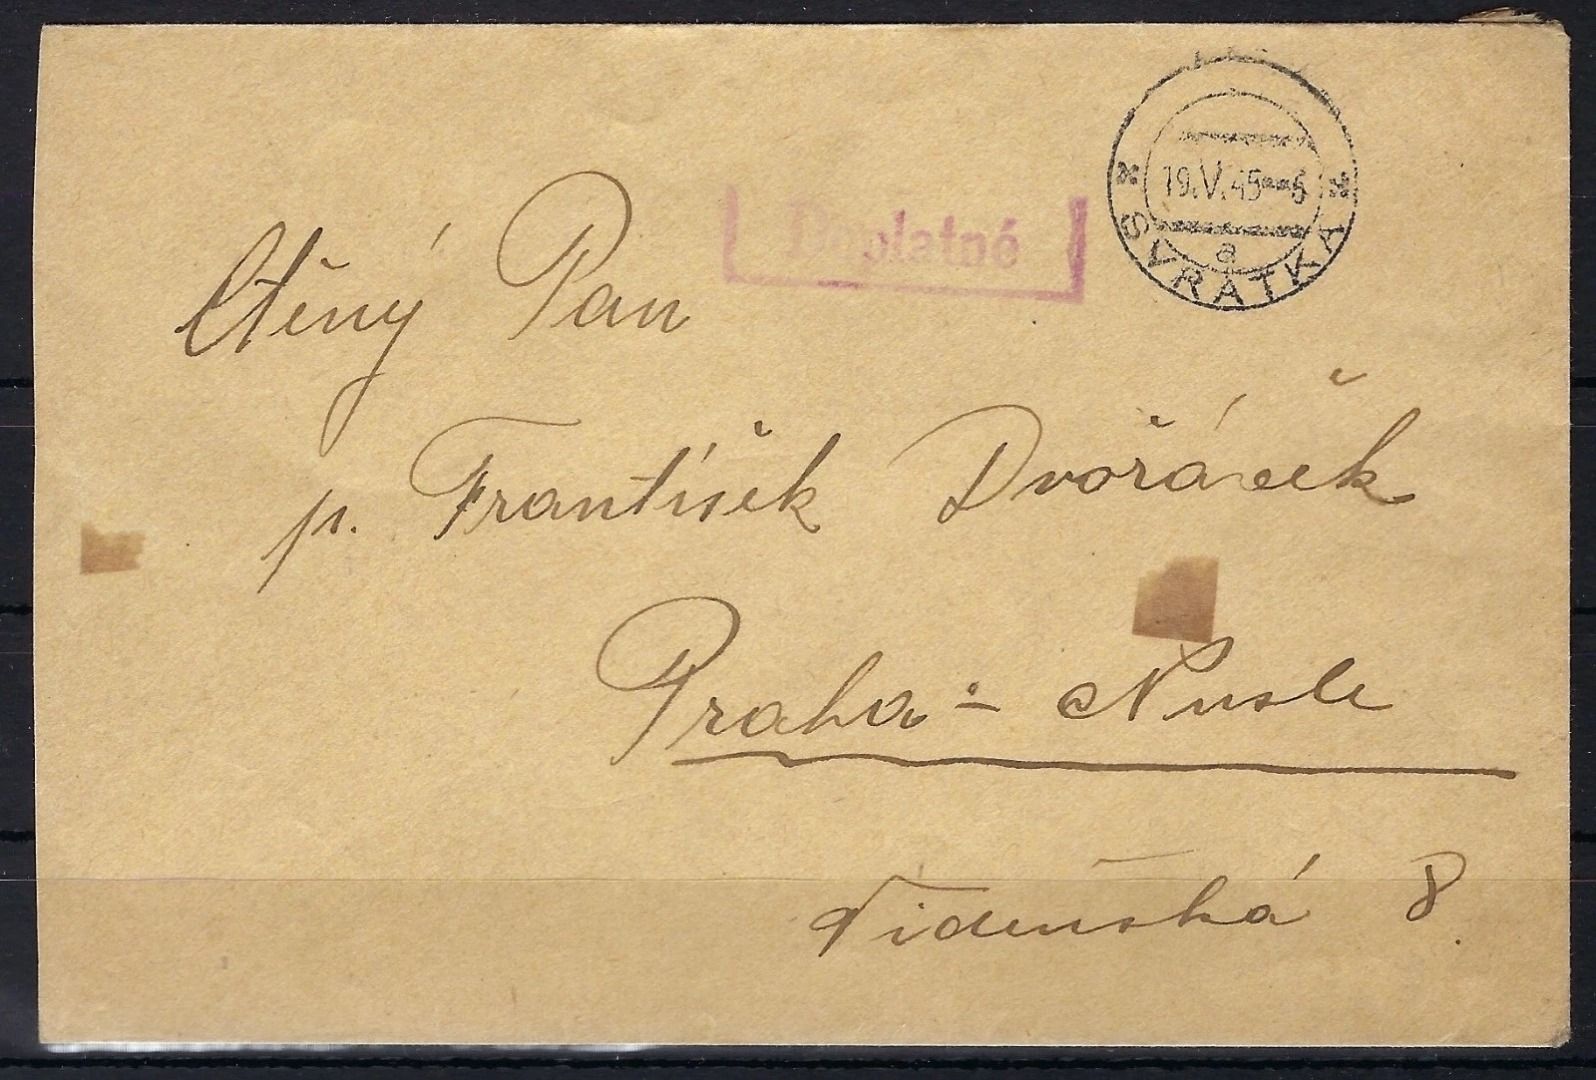 19.V.45--6
a
SVRATKA
Doplatné
Ctěný Pan
p. František Dvořáček
Praha - Nusle
Vídeňská 8.